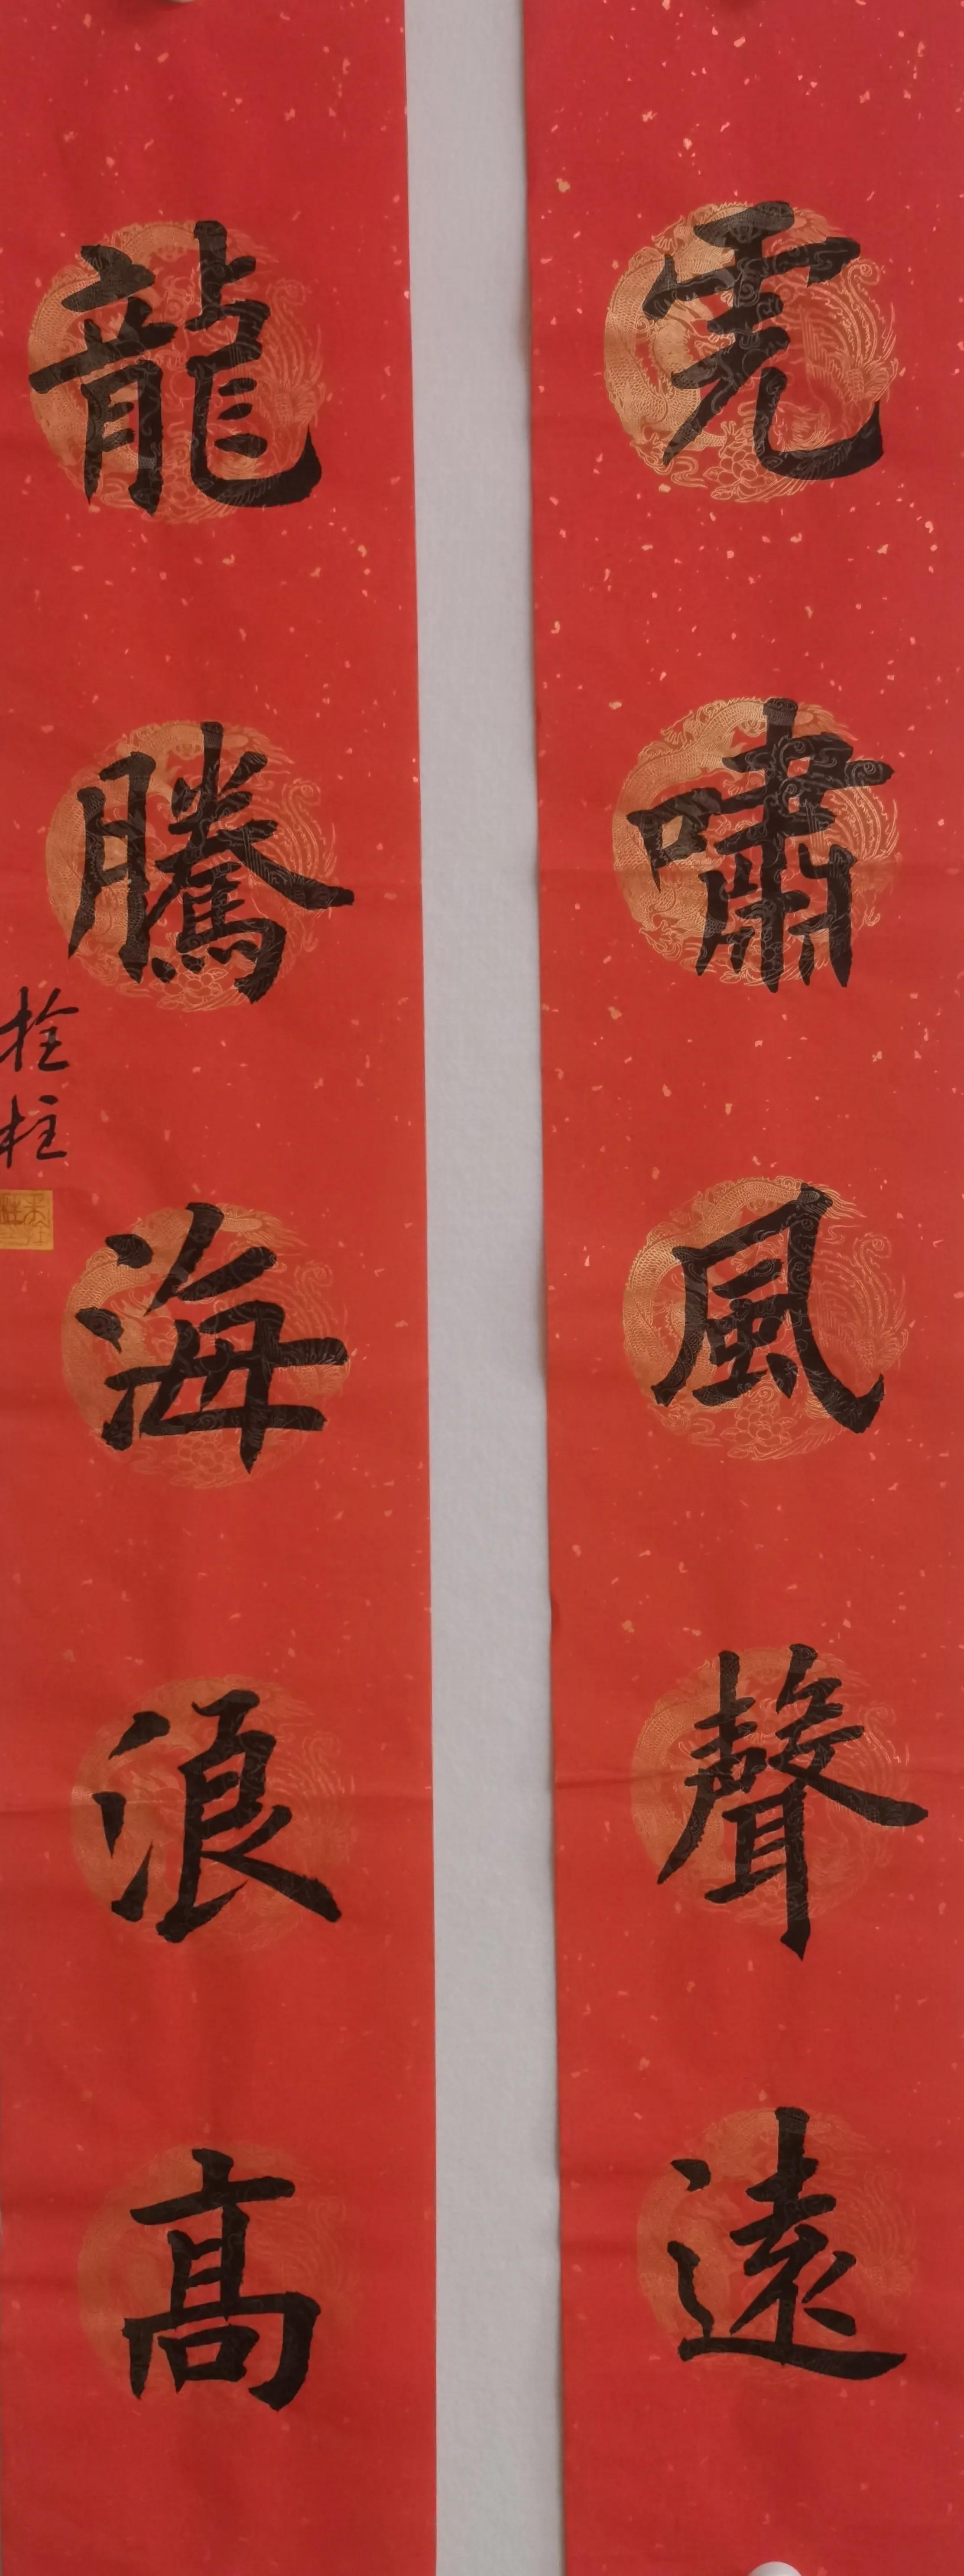 虎啸風聲遠
龍騰海浪高
拴柱